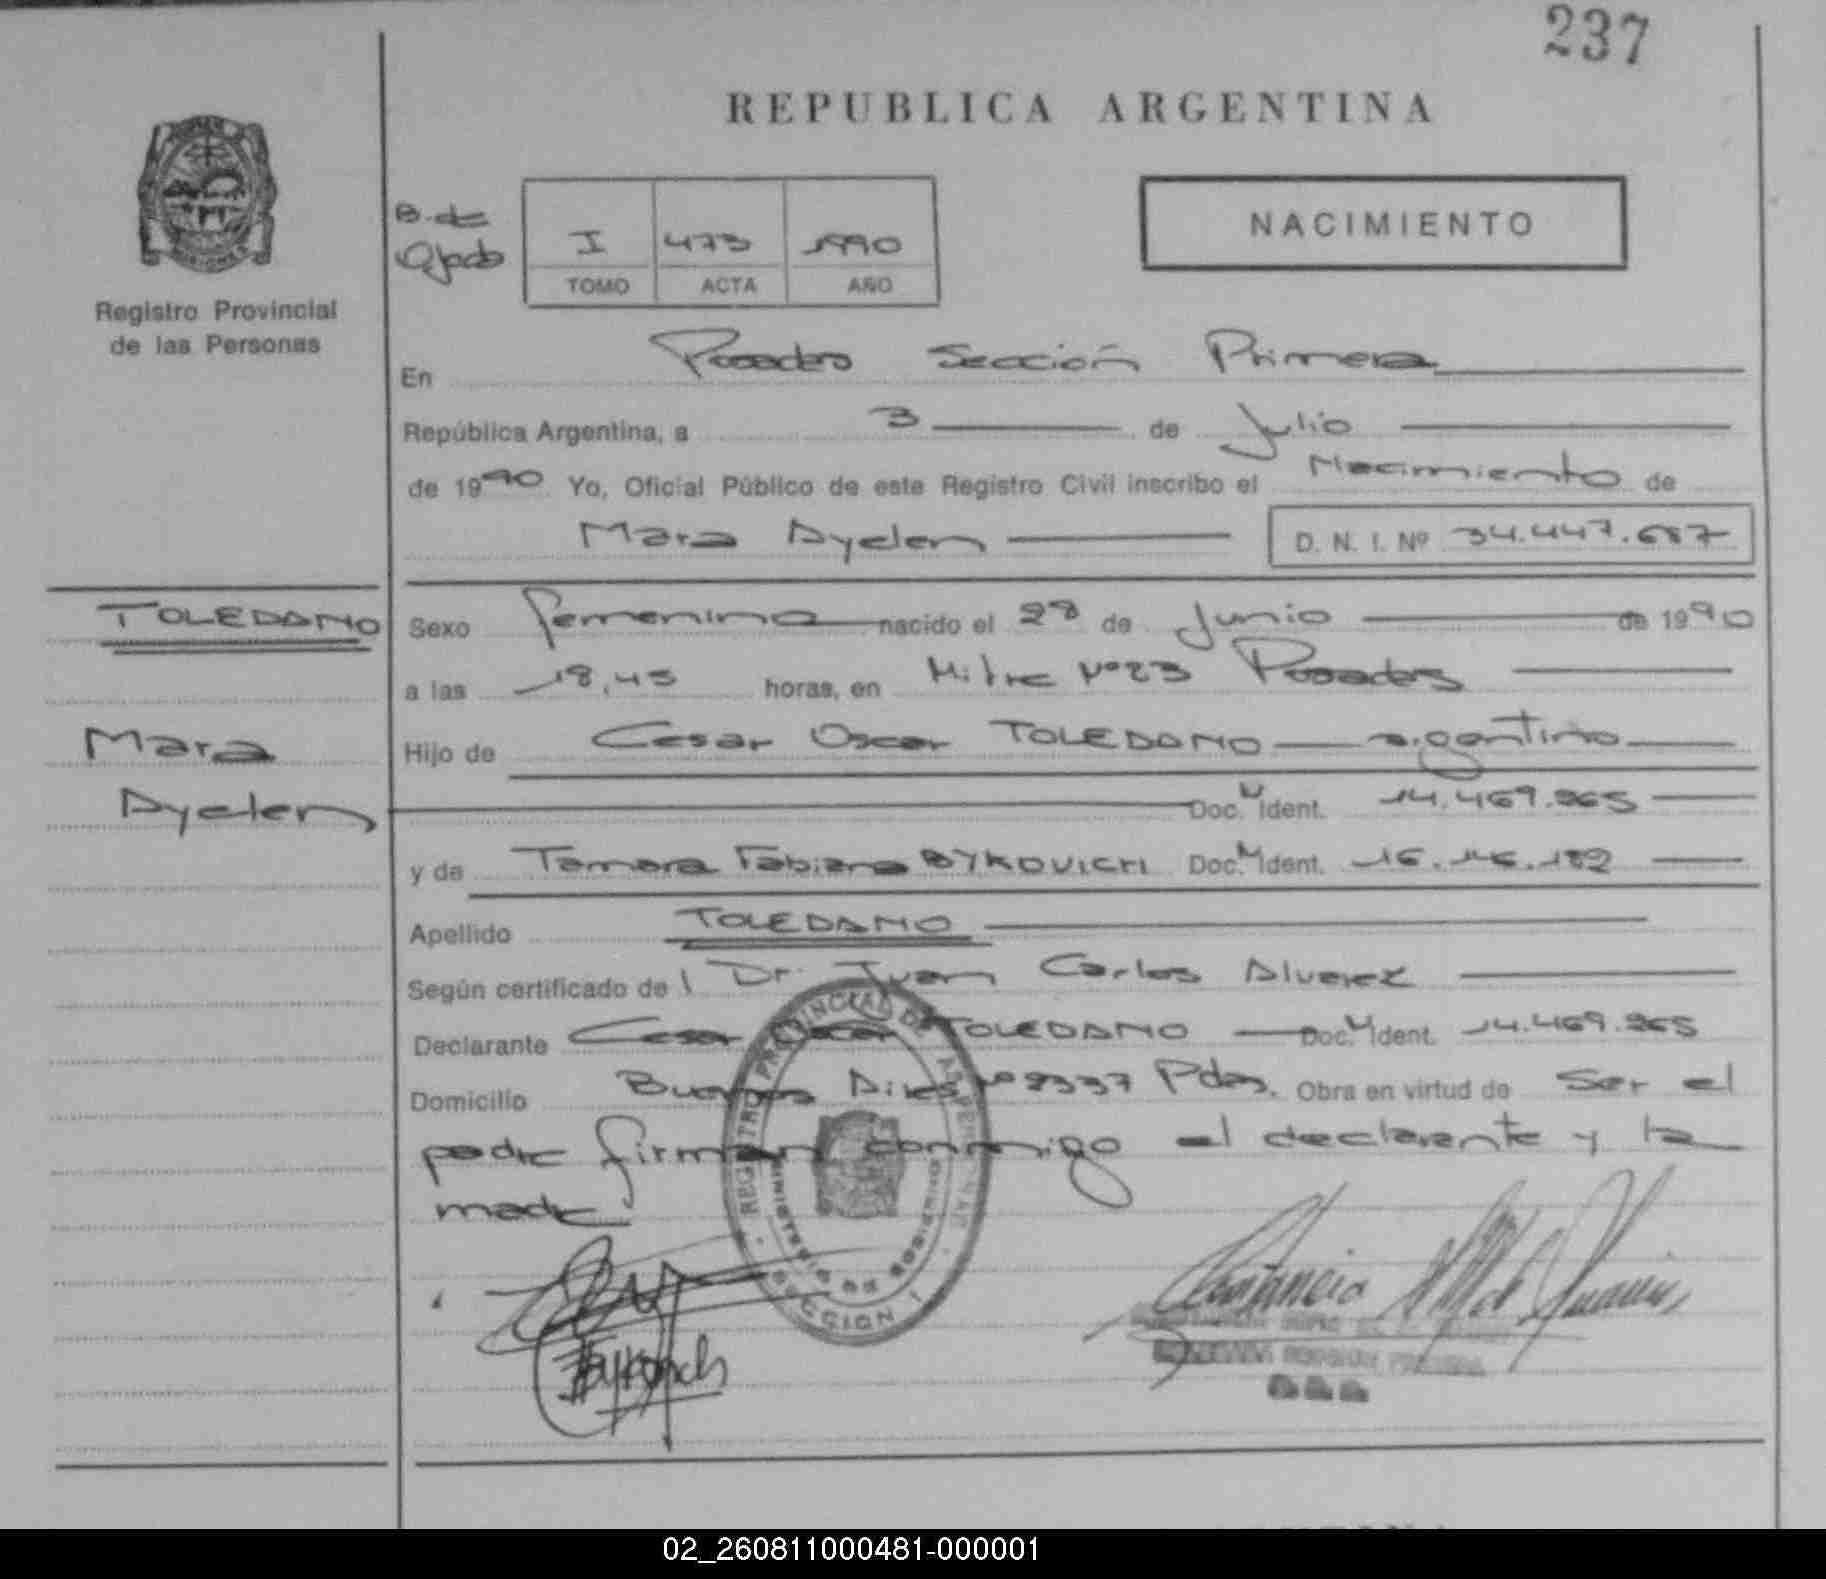 237
REPUBLICA ARGENTINA
B. de
I 473 1990
TOMO ACTA AÑO
NACIMIENTO
Registro Provincial
de las Personas
En Posadas Sección Primera
República Argentina, a 3 de Julio
de 1990 Yo, Oficial Público de este Registro Civil inscribo el Nacimiento de
Mara Ayelen D. N. I. Nº 34.447.687
TOLEDANO
Sexo femenino nacido el 28 de Junio de 1990
a las 18,45 horas, en Mitre Nº 23 Posadas
Mara
Hijo de Cesar Oscar TOLEDANO argentino
Ayelen
Doc. N Ident. 14.469.265
y de Tamara Fabiana BYKOVICH Doc. N Ident.
Apellido TOLEDANO
Según certificado de l Dr. Juan Carlos Alvarez
Declarante Cesar Oscar TOLEDANO Doc. N Ident. 14.469.265
Domicilio Buenos Aires Nº 2337 Pdas. Obra en virtud de Ser el
padre firman conmigo el declarante y la
madre
REGISTRO PROVINCIAL DE LAS PERSONAS
MINISTERIO DE GOBIERNO
SECCION 1
Bykovich
02_260811000481-000001